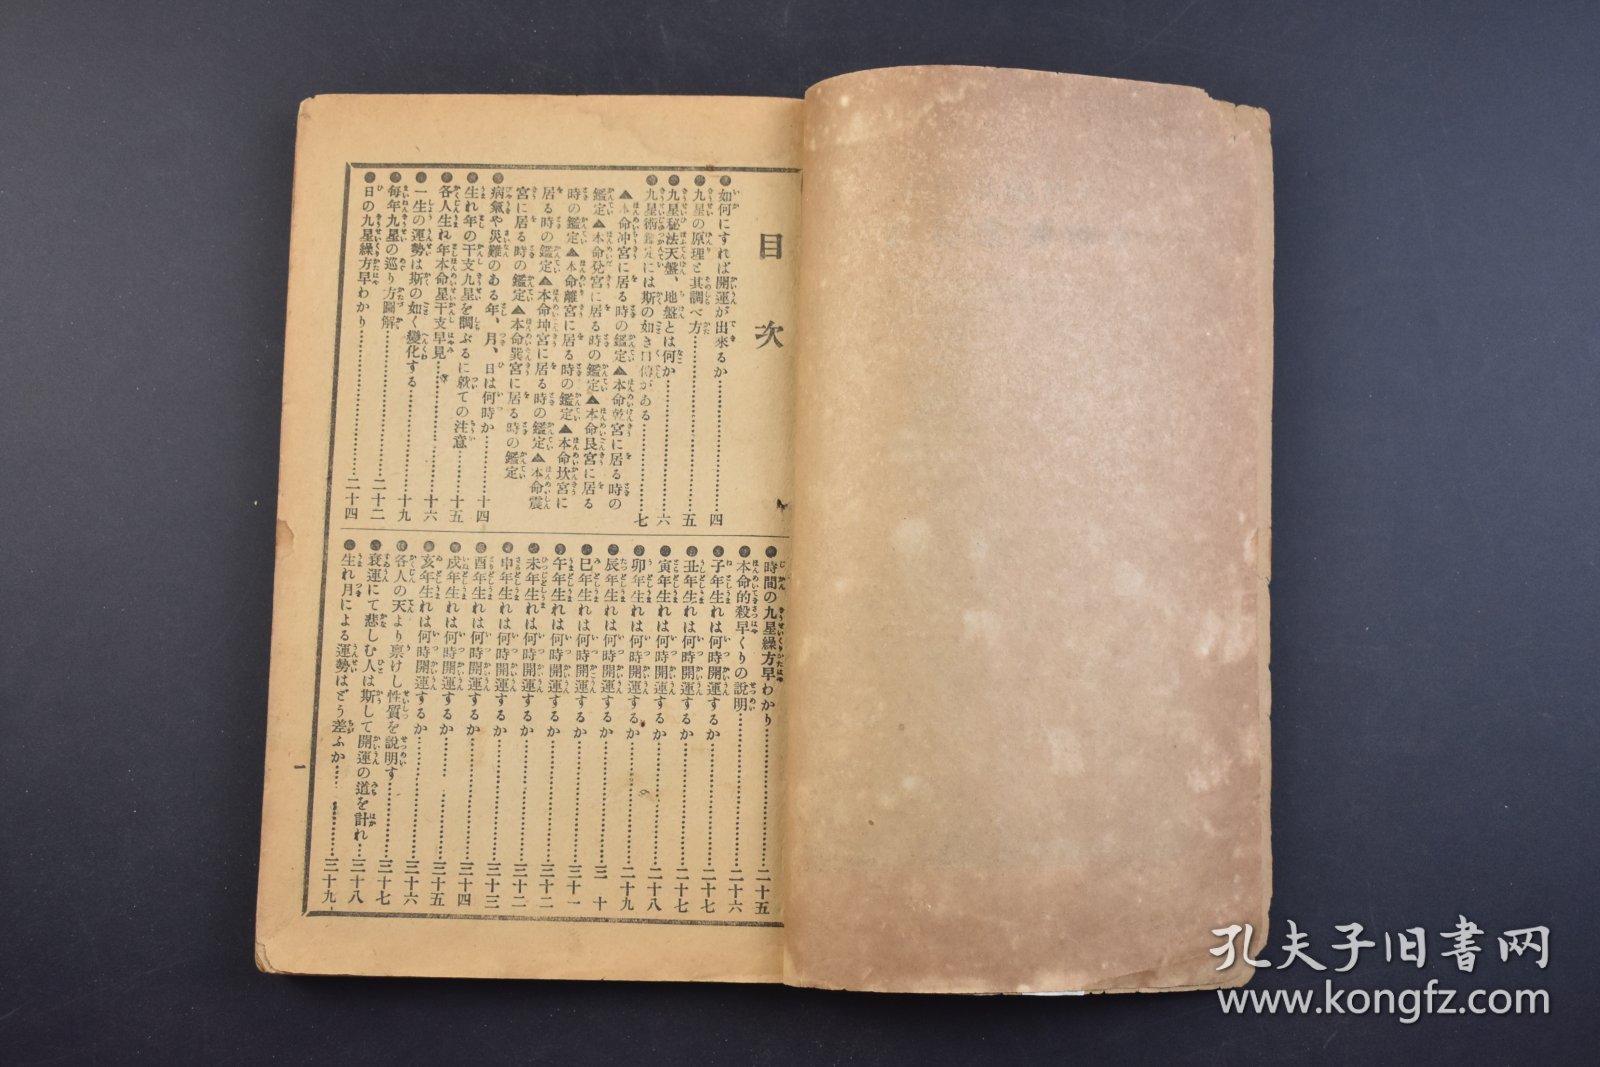 目次
如何にすれば開運が出來るか…………四
九星の原理と其調べ方…………五
九星秘法天盤、地盤とは何か…………六
九星術鑑定には斯の如き口傳がある…………七
▲本命冲宮に居る時の鑑定▲本命乾宮に居る時の
鑑定▲本命兌宮に居る時の鑑定▲本命艮宮に居る
時の鑑定▲本命離宮に居る時の鑑定▲本命坎宮に
居る時の鑑定▲本命坤宮に居る時の鑑定▲本命震
宮に居る時の鑑定▲本命巽宮に居る時の鑑定
病氣や災難のある年、月、日は何時か…………十四
生れ年の干支九星を調ぶるに就ての注意…………十五
各人生れ年本命星干支早見…………十六
一生の運勢は斯の如く變化する…………十九
毎年九星の巡り方圖解…………二十二
日の九星繰方早わかり…………二十四
時間の九星繰方早わかり…………二十五
本命的殺早くりの說明…………二十六
子年生れは何時開運するか…………二十七
丑年生れは何時開運するか…………二十七
寅年生れは何時開運するか…………二十八
卯年生れは何時開運するか…………二十九
辰年生れは何時開運するか…………三十
巳年生れは何時開運するか…………三十一
午年生れは何時開運するか…………三十二
未年生れは何時開運するか…………三十二
申年生れは何時開運するか…………三十三
酉年生れは何時開運するか…………三十四
戌年生れは何時開運するか…………三十五
亥年生れは何時開運するか…………三十六
各人の天より禀けし性質を說明す…………三十七
衰運にて悲しむ人は斯して開運の道を計れ…三十八
生れ月による運勢はどう差ふか…………三十九
一
孔夫子旧書网
www.kongfz.com